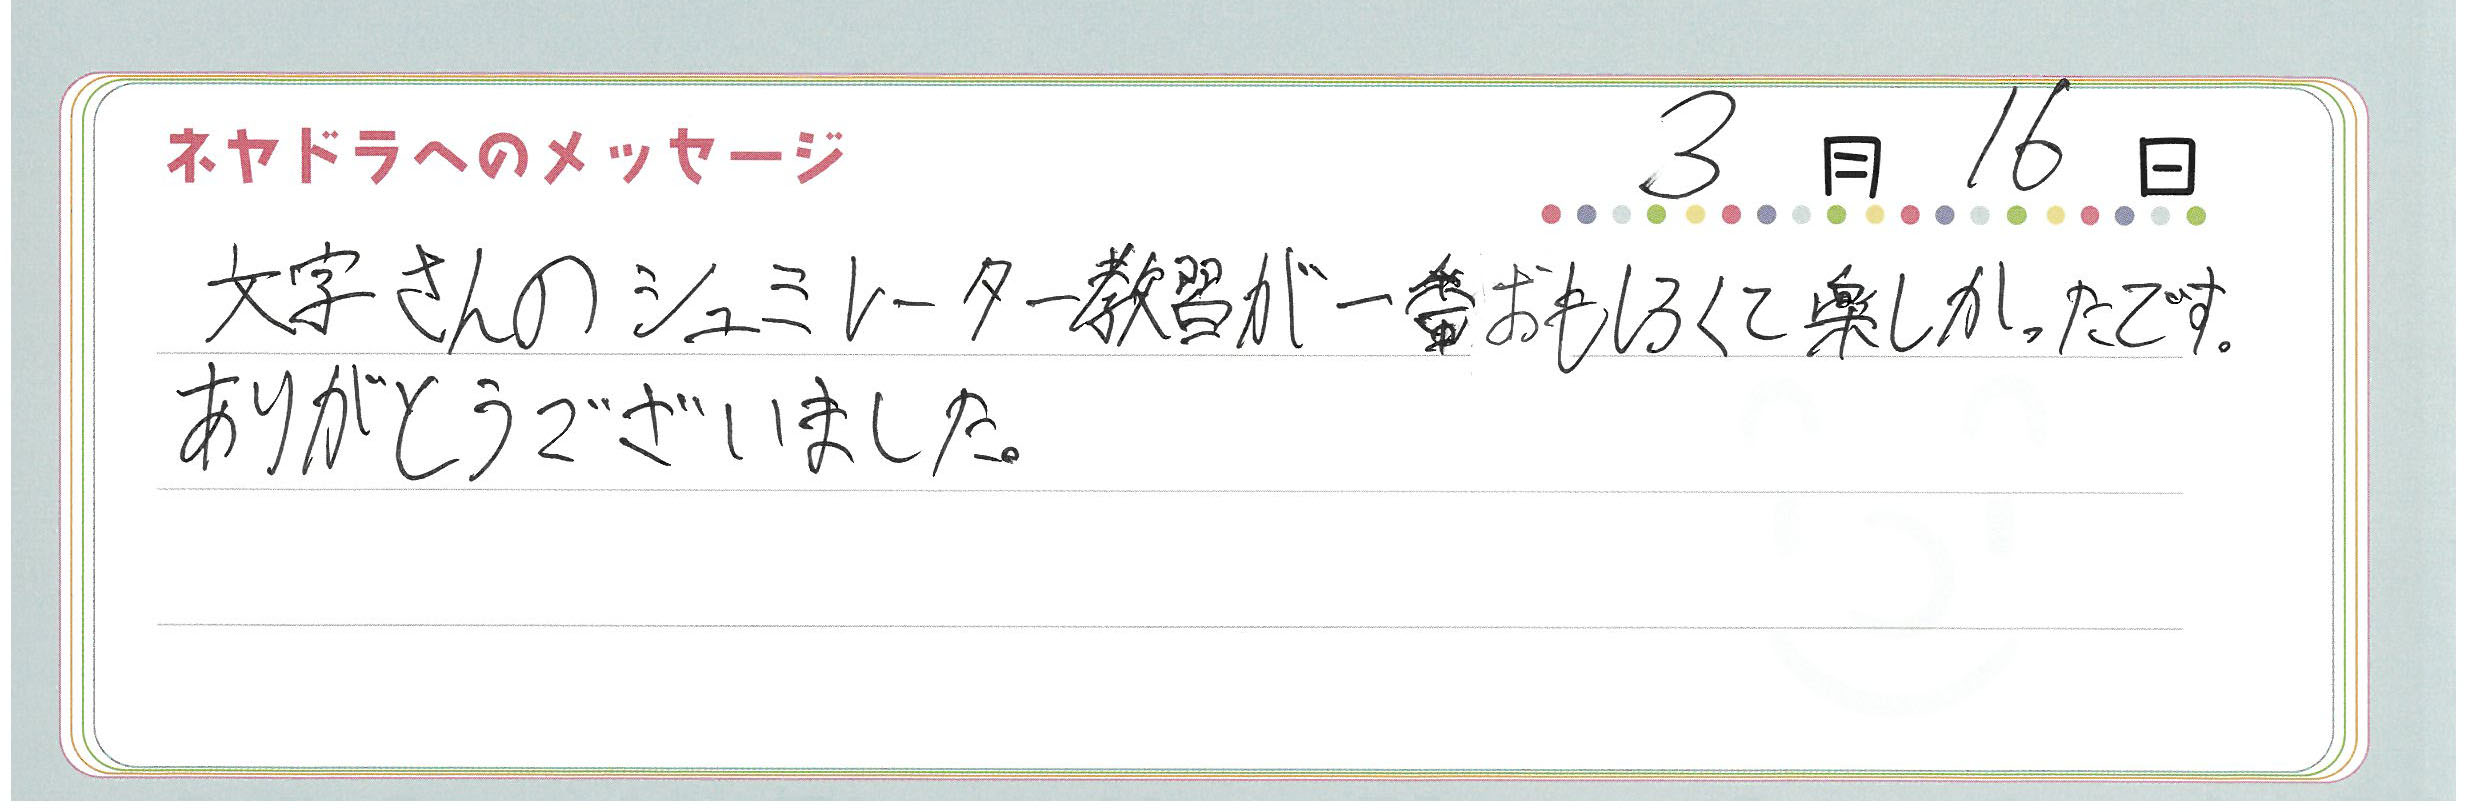 ネヤドラへのメッセージ
3月16日
文字さんのシュミレーター教習が一番おもしろくて楽しかったです。
ありがとうございました。